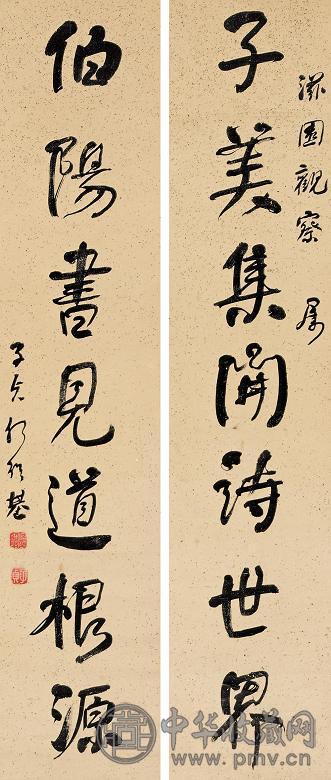 滋園觀察 屬
子美集開詩世界
伯陽書見道根源
子貞何紹基
中华收藏网
www.pmv.cn